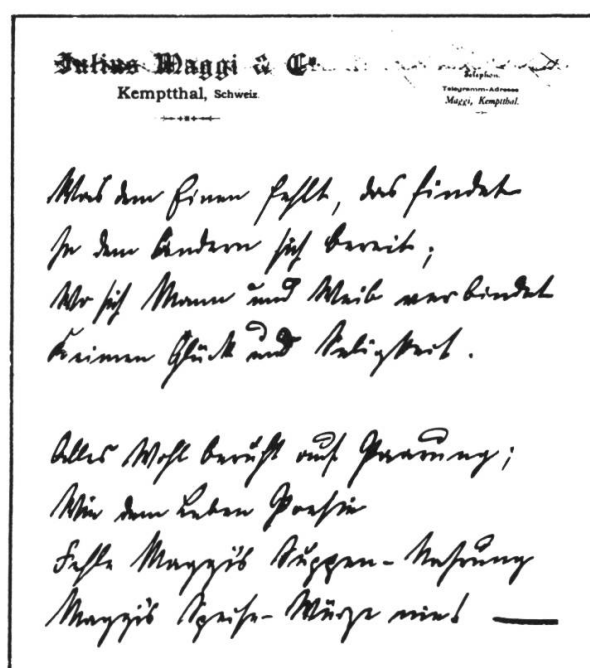 Julius Maggi & Cie
Kemptthal, Schweiz.
Telephon.
Telegramm-Adresse
Maggi, Kemptthal.
Was dem Einen fehlt, das findet
In dem Andern sich bereit;
Wo sich Mann und Weib verbindet
Keimen Glück und Seligkeit.
Alles Wohl beruht auf Paarung;
Wie dem Leben Poesie
Fehle Maggi's Suppen-Nahrung
Maggi's Speise-Würze nie!